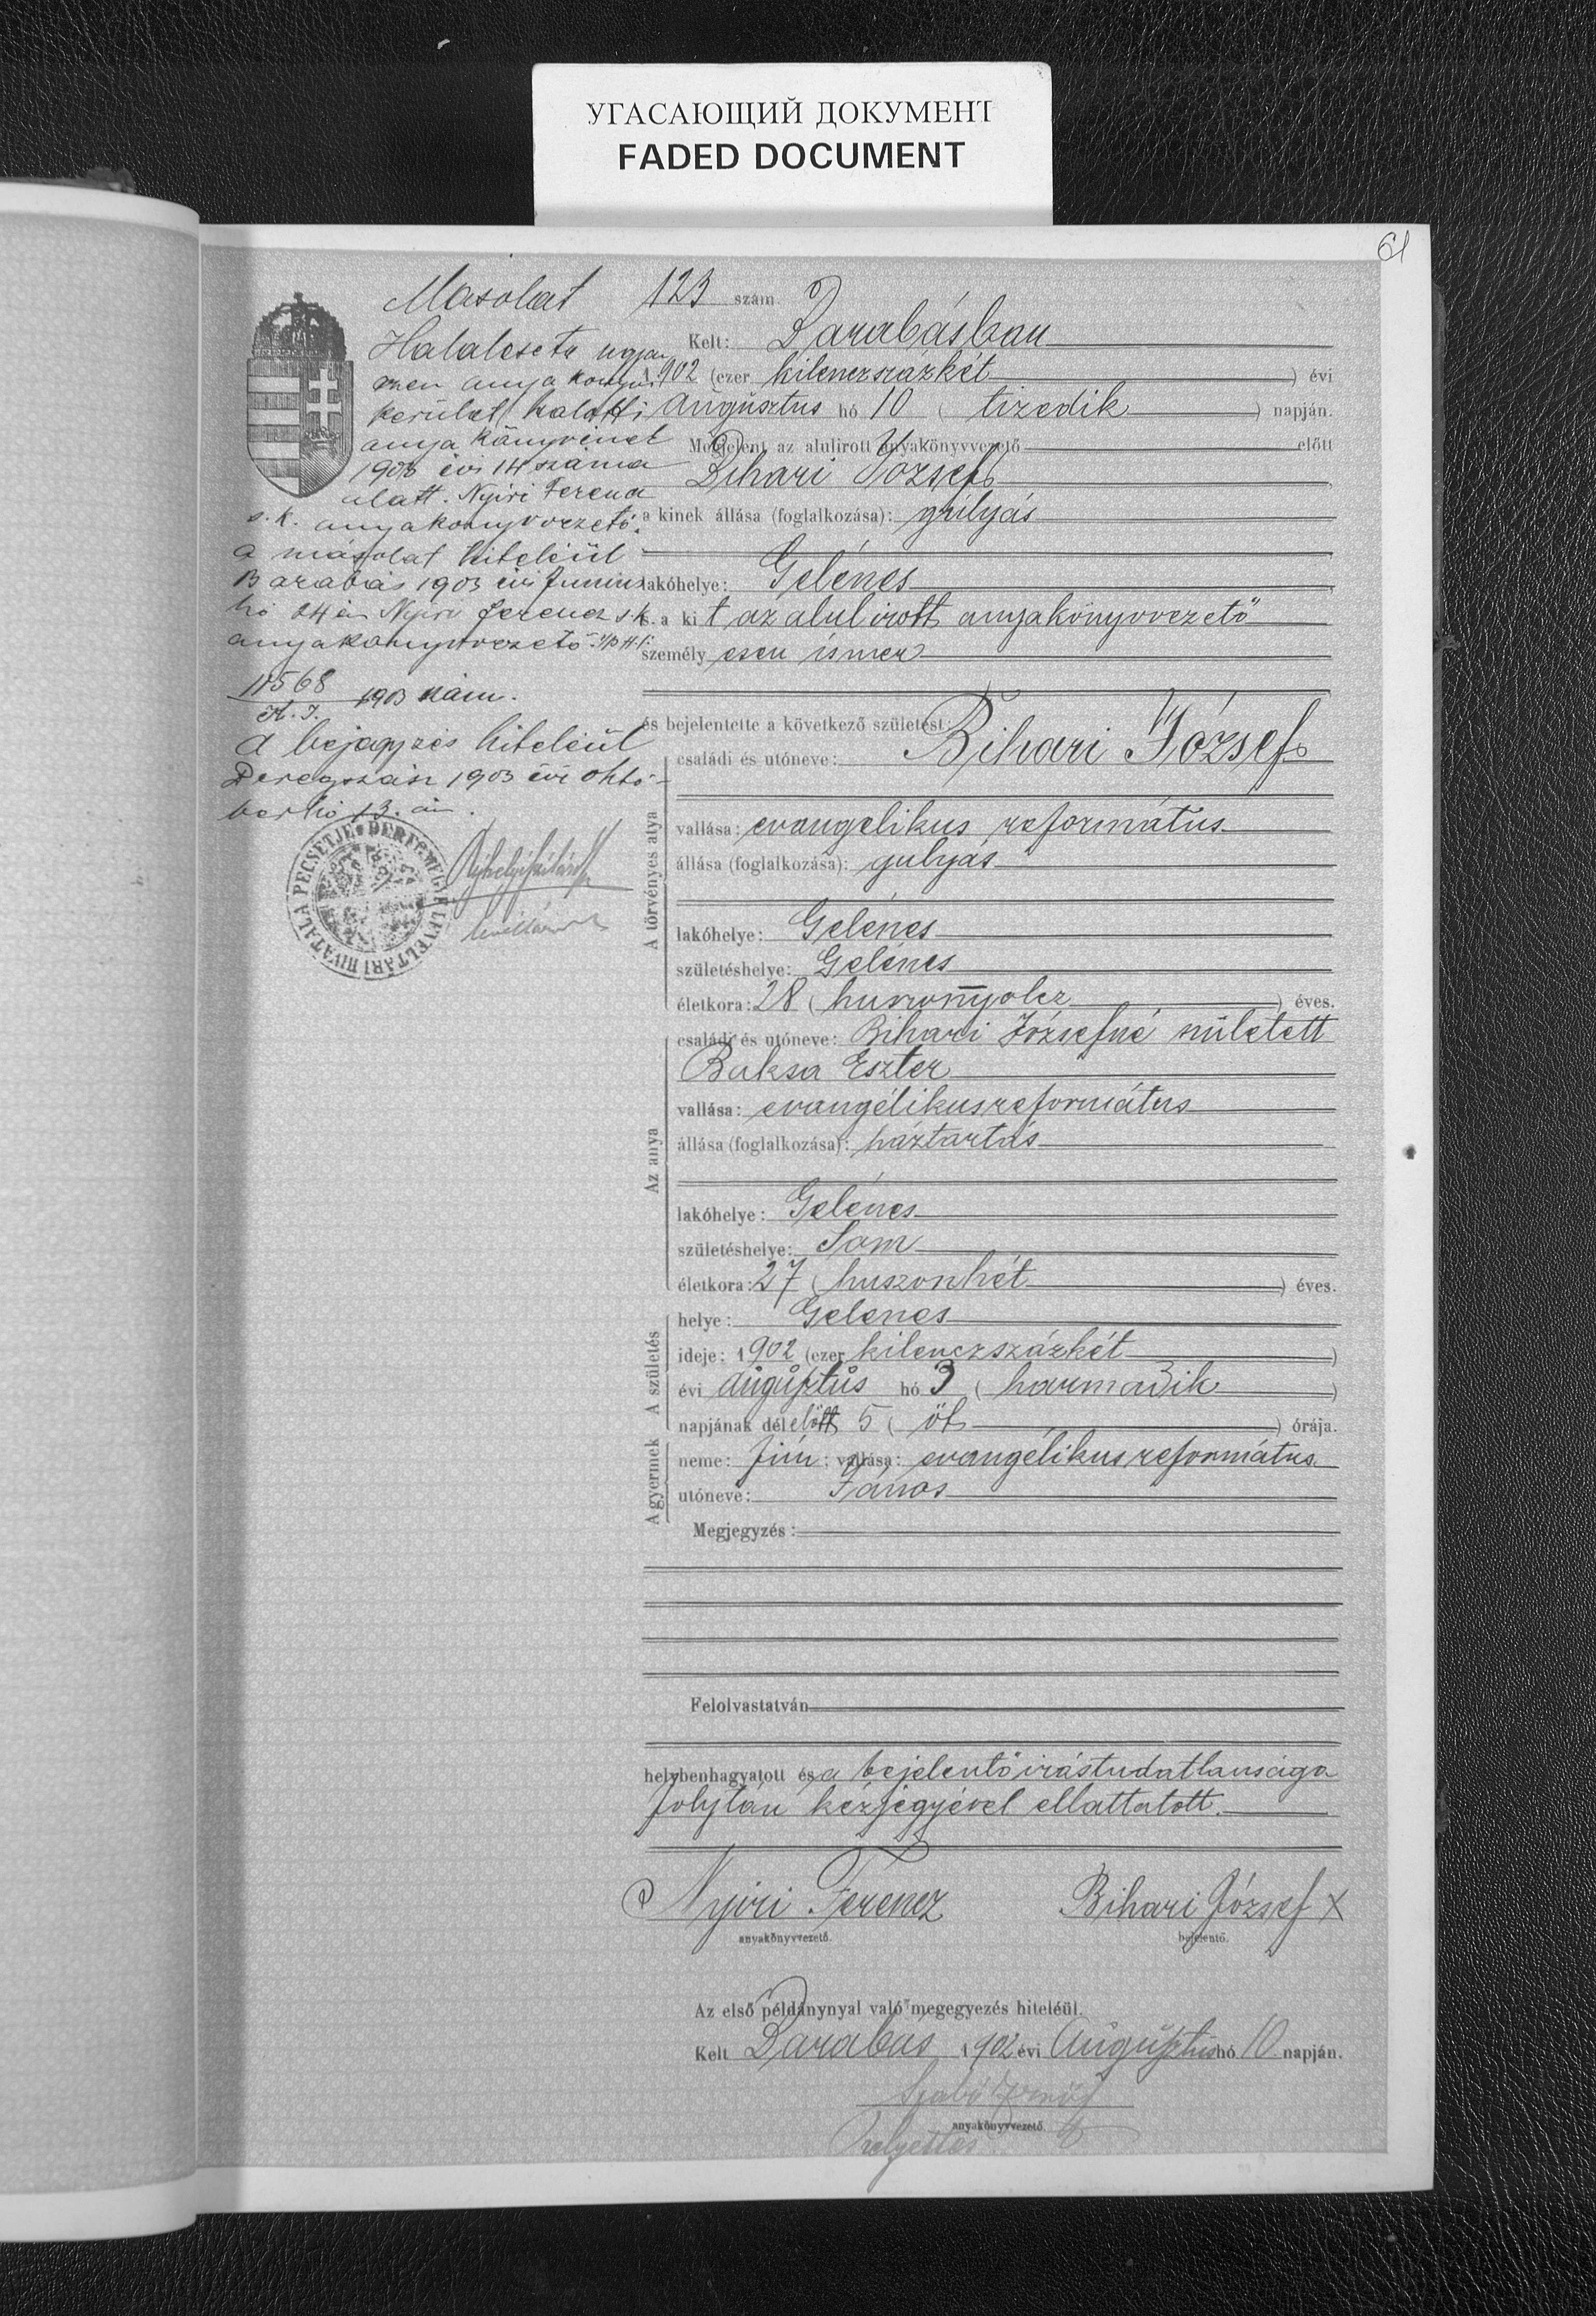 УГАСАЮЩИЙ ДОКУМЕНТ
FADED DOCUMENT
61
Masolat
Halaleseta ugyan
ezen anyakönyvi
kerület halotti
anyakönyvének
1903 évi 14 száma
alatt. Nyiri Ferencz
s.k. anyakönyvvezető.
a másolat hiteléül
Barabás 1903 évi Junius
hó 24 én Nyiri Ferencz s.k.
anyakönyvvezető
11568
1903 szám.
A bejegyzés hiteléül
Beregszász 1903 évi októ-
ber hó 13. án
BEREGMEGYE LEVÉLTÁRI HIVATALA PECSÉTJE
123 szám
Kelt: Barabásban
1902 (ezer kilenczszázkét ) évi
augusztus hó 10 ( tizedik ) napján.
Megjelent az alulirott anyakönyvvezető előtt
Bihari József
a kinek állása (foglalkozása): gulyás
lakóhelye: Gelénes
s. a ki t az alulirott anyakönyvvezető
személy esen ismer
és bejelentette a következő születést:
A törvényes atya
családi és utóneve: Bihari József
vallása: evangelikus református
állása (foglalkozása): gulyás
lakóhelye: Gelénes
születéshelye: Gelénes
életkora: 28 ( huszonnyolcz ) éves.
Az anya
családi és utóneve: Bihari Józsefné született
Baksa Eszter
vallása: evangélikusreformátus
állása (foglalkozása): háztartás
lakóhelye: Gelénes
születéshelye: Som
életkora: 27 ( huszonhét ) éves.
A születés
helye: Gelenes
ideje: 1902 (ezer kilenczszázkét )
évi augusztus hó 3 ( harmadik )
napjának délelőtt 5 ( öt ) órája.
A gyermek
neme: fiú; vallása: evangélikusreformátus
utóneve: János
Megjegyzés:
Felolvastatván
helybenhagyatott és a bejelentő irástudatlansága
folytán kézjegyével ellattatott.
Nyiri Ferencz Bihari József X
anyakönyvvezető. bejelentő.
Az első példánynyal való megegyezés hiteléül.
Kelt Barabás 1902 évi Augusztus hó 10 napján.
Szabó
anyakönyvvezető
helyettes